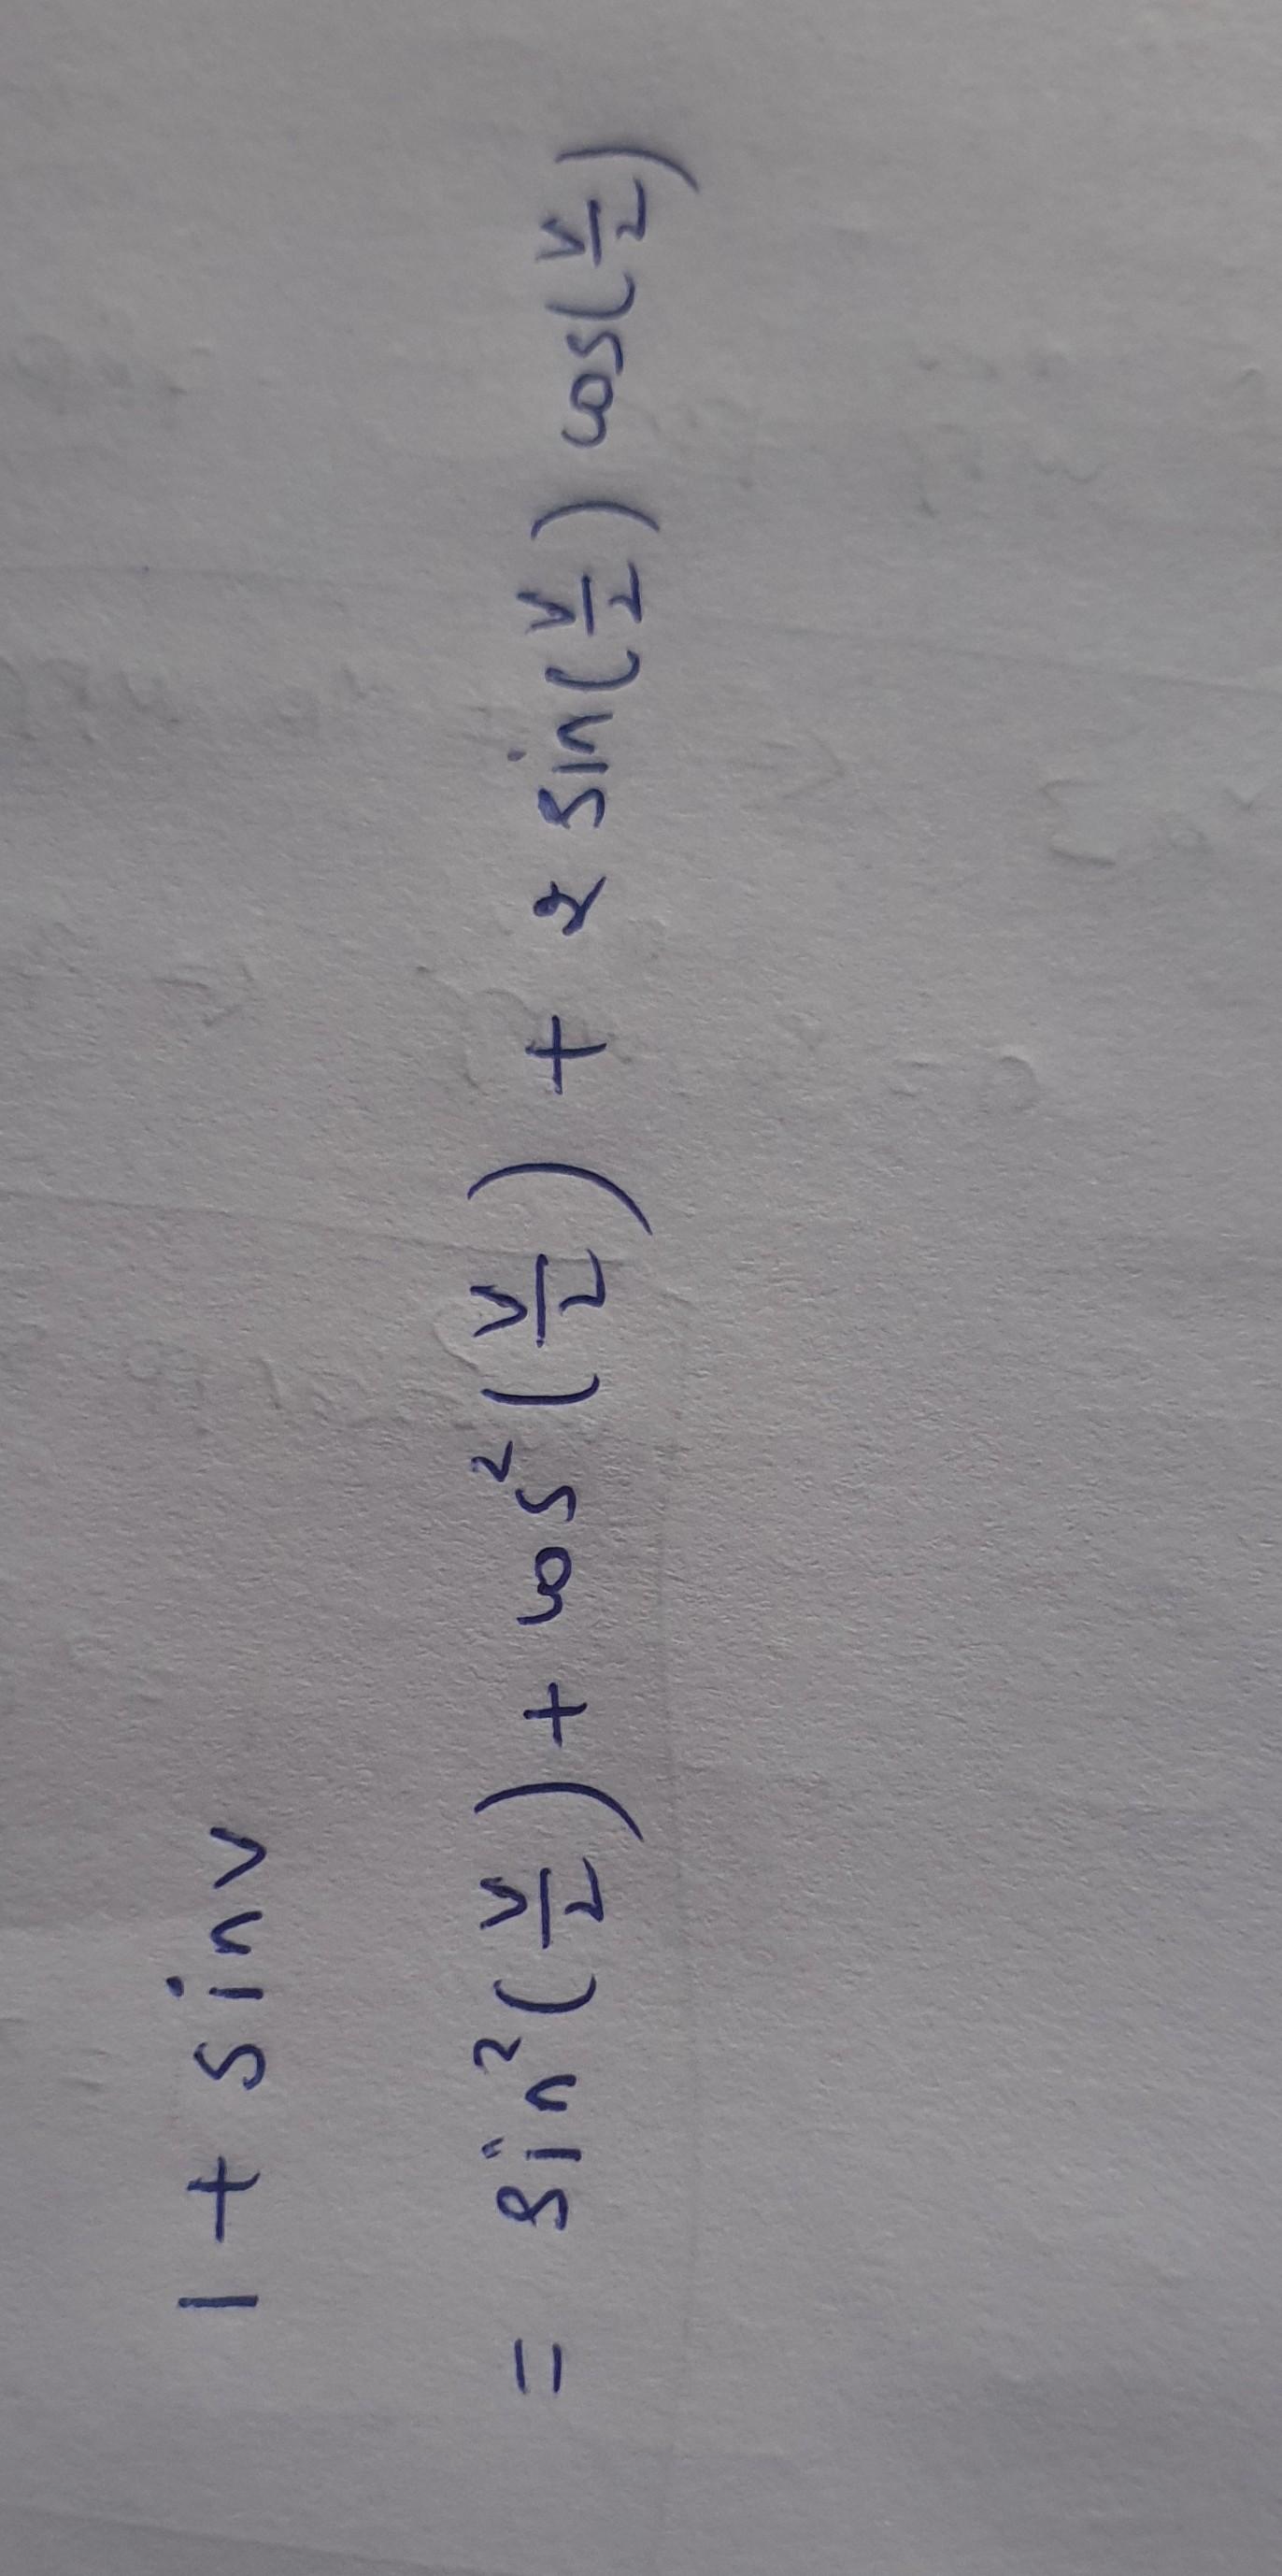 1 + sin v
= sin²(v/2) + cos²(v/2) + 2 sin(v/2) cos(v/2)